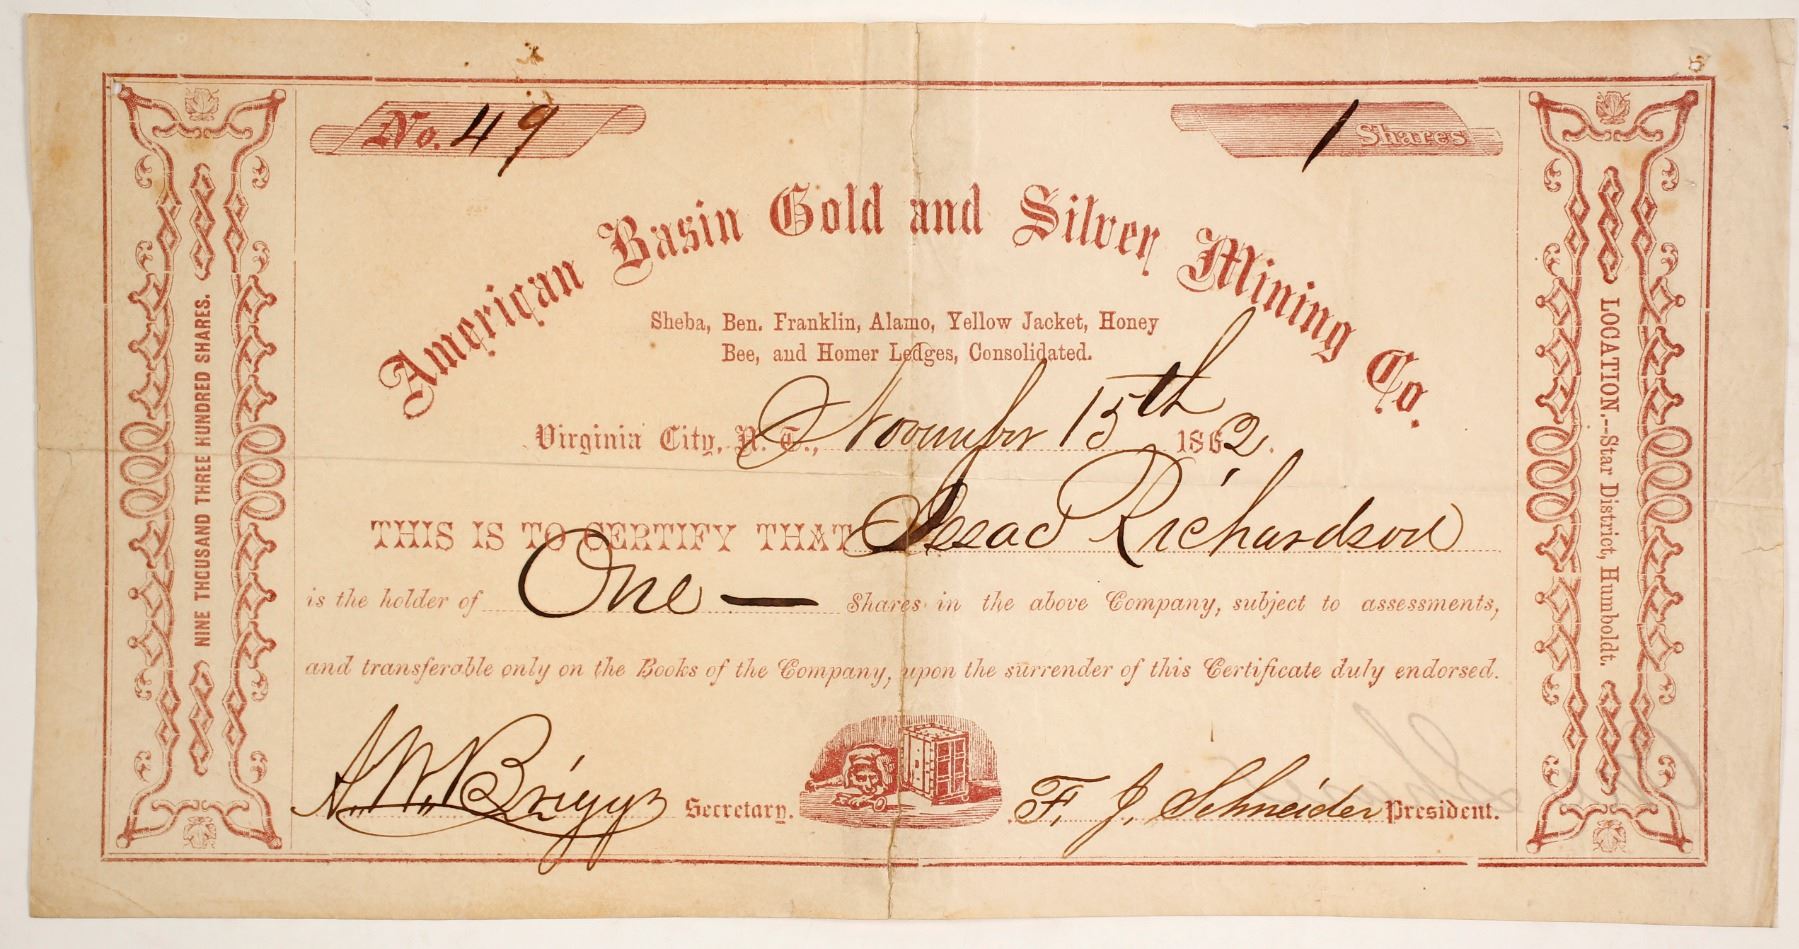 No. 49
1 Shares
American Basin Gold and Silver Mining Co.
Sheba, Ben. Franklin, Alamo, Yellow Jacket, Honey
Bee, and Homer Ledges, Consolidated.
Virginia City, N. T., November 15th 1862.
THIS IS TO CERTIFY THAT Isaac Richardson
is the holder of One — Shares in the above Company, subject to assessments,
and transferable only on the Books of the Company, upon the surrender of this Certificate duly endorsed.
A. W. Briggs Secretary.
F. J. Schneider President.
NINE THOUSAND THREE HUNDRED SHARES.
LOCATION.--Star District, Humboldt.